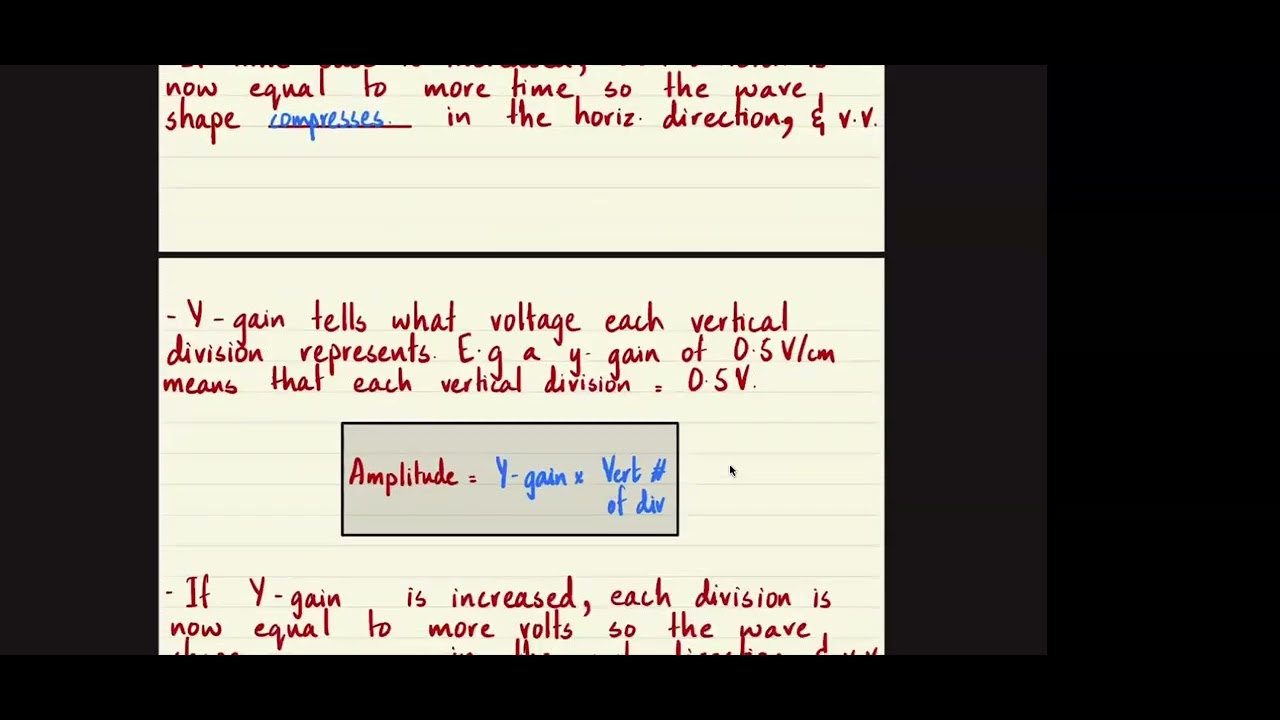 now equal to more time, so the wave
shape compresses. in the horiz. direction, & v.v.
- Y-gain tells what voltage each vertical
division represents. E.g a y-gain of 0.5 V/cm
means that each vertical division = 0.5V.
Amplitude = Y-gain × Vert #
of div
- If Y-gain is increased, each division is
now equal to more volts so the wave